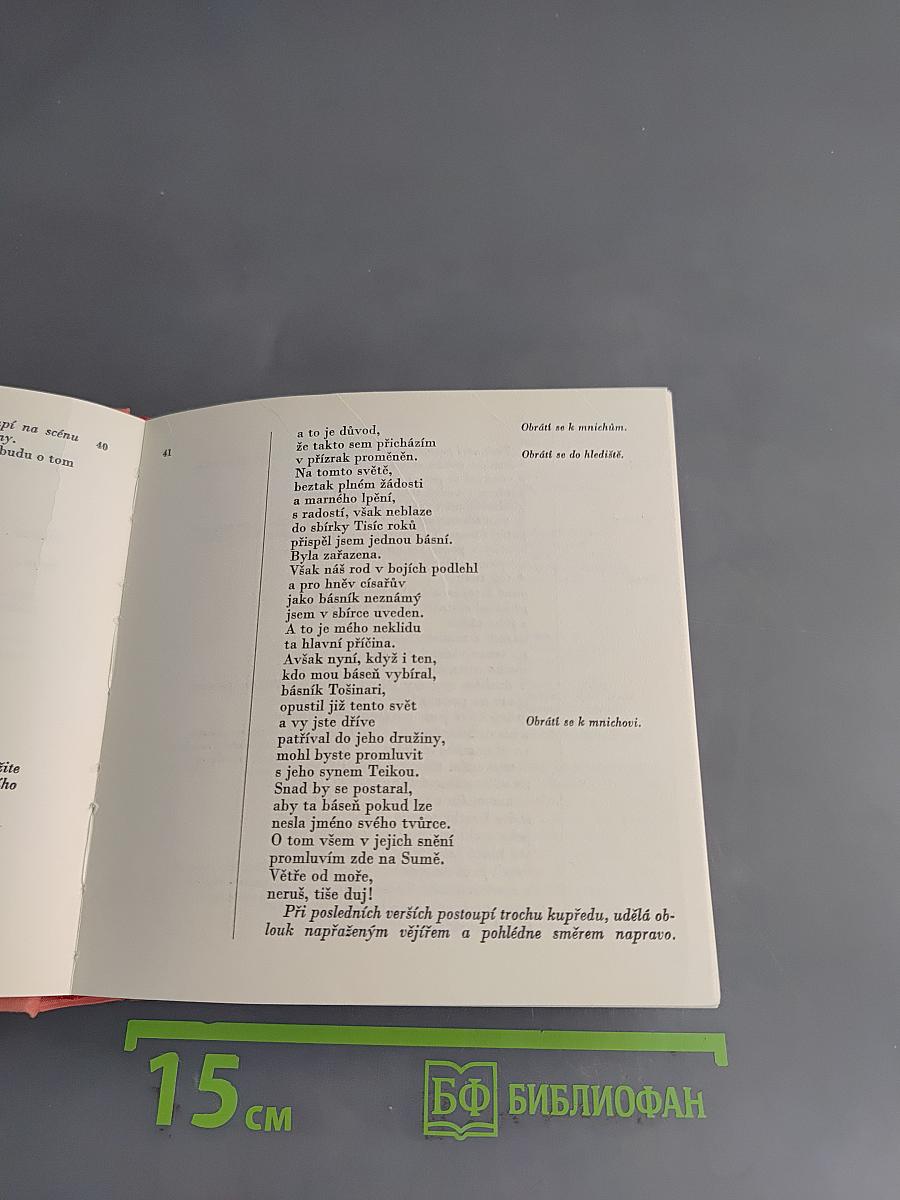 pí na scénu
ny.
budu o tom
40
41
a to je důvod,
Obrátí se k mnichům.
že takto sem přicházím
v přízrak proměněn.
Obrátí se do hlediště.
Na tomto světě,
beztak plném žádosti
a marného lpění,
s radostí, však neblaze
do sbírky Tisíc roků
přispěl jsem jednou básní.
Byla zařazena.
Však náš rod v bojích podlehl
a pro hněv císařův
jako básník neznámý
jsem v sbírce uveden.
A to je mého neklidu
ta hlavní příčina.
Avšak nyní, když i ten,
kdo mou báseň vybíral,
básník Tošinari,
opustil již tento svět
a vy jste dříve
Obrátí se k mnichovi.
patříval do jeho družiny,
mohl byste promluvit
s jeho synem Teikou.
Snad by se postaral,
aby ta báseň pokud lze
nesla jméno svého tvůrce.
O tom všem v jejich snění
promluvím zde na Sumě.
Větře od moře,
neruš, tiše duj!
Při posledních verších postoupí trochu kupředu, udělá ob-
louk napřaženým vějířem a pohlédne směrem napravo.
15 см
БФ БИБЛИОФАН